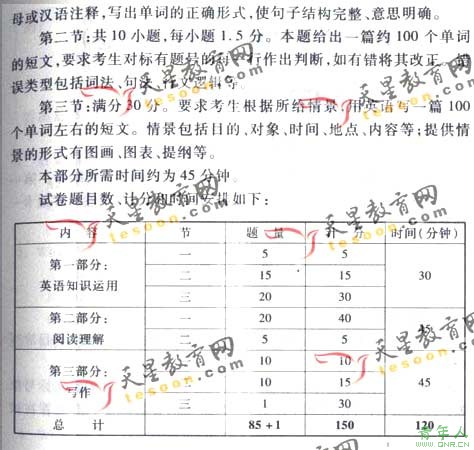 母或汉语注释,写出单词的正确形式,使句子结构完整、意思明确。
第二节:共 10 小题,每小题 1.5 分。本题给出一篇约 100 个单词
的短文,要求考生对标有题号的 行作出判断,如有错将其改正。
误类型包括词法、句
第三节:满分 30 分。要求考生根据所给情景,用英语写一篇 100
个单词左右的短文。情景包括目的、对象、时间、地点、内容等;提供情
景的形式有图画、图表、提纲等。
本部分所需时间约为 45 分钟。
试卷题目数、计分和时间安排如下:
内 容 节 题 量 计 分 时间(分钟)
第一部分:
英语知识运用
一 5 5
二 15 15 30
三 20 30
第二部分:
阅读理解
一 20 40
二 5 5 45
第三部分:
写作
一 10 10
二 10 15 45
三 1 30
总 计 85+1 150 120
天星教育网
tesoon.com
天星教育网
tesoon.com
天星教育网
tesoon.com
天星教育网
tesoon.com
天星教育网
tesoon.com
天星教育网
tesoon.com
青年人
www.QNR.CN